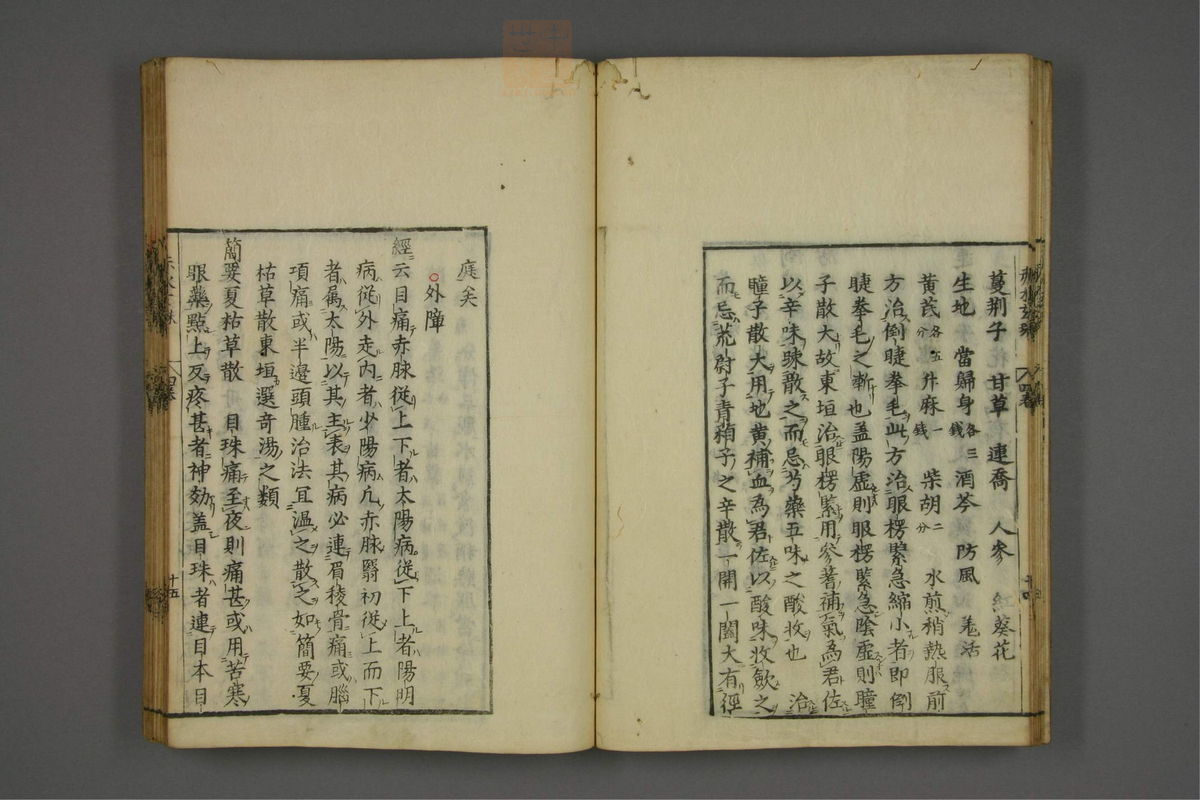 蔓荆子 甘草 連喬 人參 紅葵花
生地 當歸身各三錢 酒芩 防風 羗活
黄芪各五分 升麻一錢 柴胡二分 水煎稍熱服前
方治倒睫拳毛此方治眼楞緊急縮小者即倒
睫拳毛之漸也盖陽虚則眼楞緊急陰虚則瞳
子散大故東垣治眼楞緊用參蓍補氣為君佐
以辛味疎散之而忌芍藥五味之酸收也 治
瞳子散大用地黄補血為君佐以酸味收歛之
而忌茺蔚子青葙子之辛散一開一闔大有徑
庭矣
○外障
經云目痛赤脉從上下者太陽病從下上者陽明
病從外走内者少陽病凢赤脉翳初從上而下
者属太陽以其主表其病必連眉稜骨痛或腦
項痛或半邉頭腫治法宜温之散之如簡要夏
枯草散東垣選奇湯之類
簡要夏枯草散 目珠痛至夜則痛甚或用苦寒
眼藥點上反疼甚者神効盖目珠者連目本目
四卷
十五